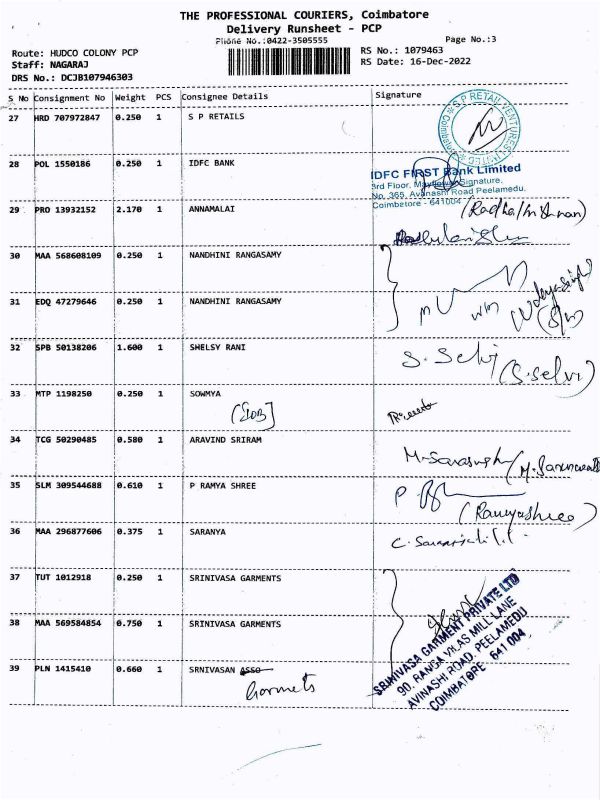 THE PROFESSIONAL COURIERS, Coimbatore
Delivery Runsheet - PCP
Phone No.:0422-3505555
Page No.:3
Route: HUDCO COLONY PCP
RS No.: 1079463
Staff: NAGARAJ
RS Date: 16-Dec-2022
DRS No.: DCJB107946303
S No Consignment No Weight PCS Consignee Details Signature
27 HRD 707972847 0.250 1 S P RETAILS
S P RETAIL VENTURES LIMITED
Coimbatore
28 POL 1550186 0.250 1 IDFC BANK
IDFC FIRST Bank Limited
3rd Floor, Mayflower Signature,
No. 365, Avinashi Road Peelamedu,
Coimbatore - 641004
29 PRO 13932152 2.170 1 ANNAMALAI
(Radhakrishnan)
30 MAA 568608109 0.250 1 NANDHINI RANGASAMY
31 EDQ 47279646 0.250 1 NANDHINI RANGASAMY
32 SPB 50138206 1.600 1 SHELSY RANI
S. Selvi
(S.selvi)
33 MTP 1198250 0.250 1 SOWMYA
34 TCG 50290485 0.580 1 ARAVIND SRIRAM
35 SLM 309544688 0.610 1 P RAMYA SHREE
(Ramyashree)
36 MAA 296877606 0.375 1 SARANYA
37 TUT 1012918 0.250 1 SRINIVASA GARMENTS
38 MAA 569584854 0.750 1 SRINIVASA GARMENTS
39 PLN 1415410 0.660 1 SRNIVASAN ASSO
Garmets
SRINIVASA GARMENT PRIVATE LTD
90, RANGA VILAS MILL LANE
AVINASHI ROAD, PEELAMEDU
COIMBATORE - 641 004.